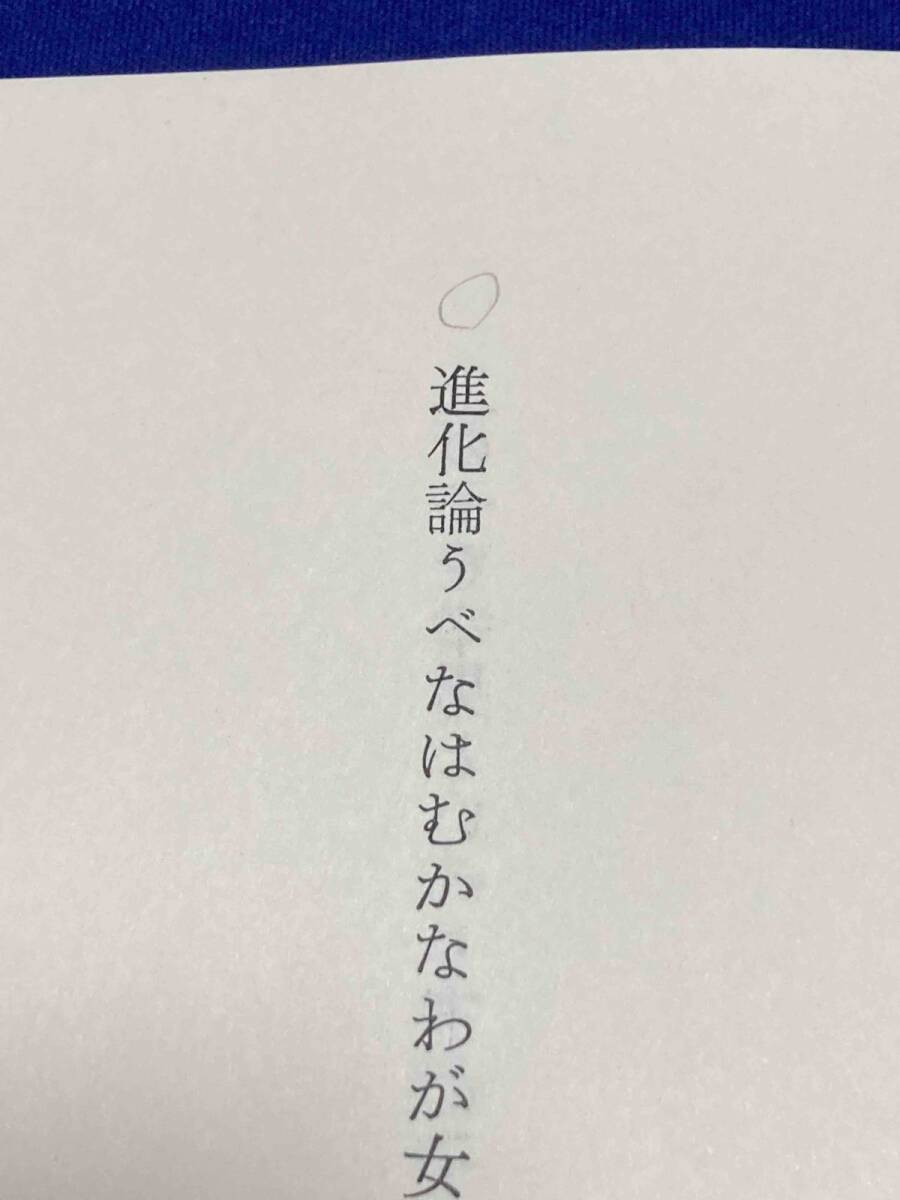 進化論うべなはむかなわが女